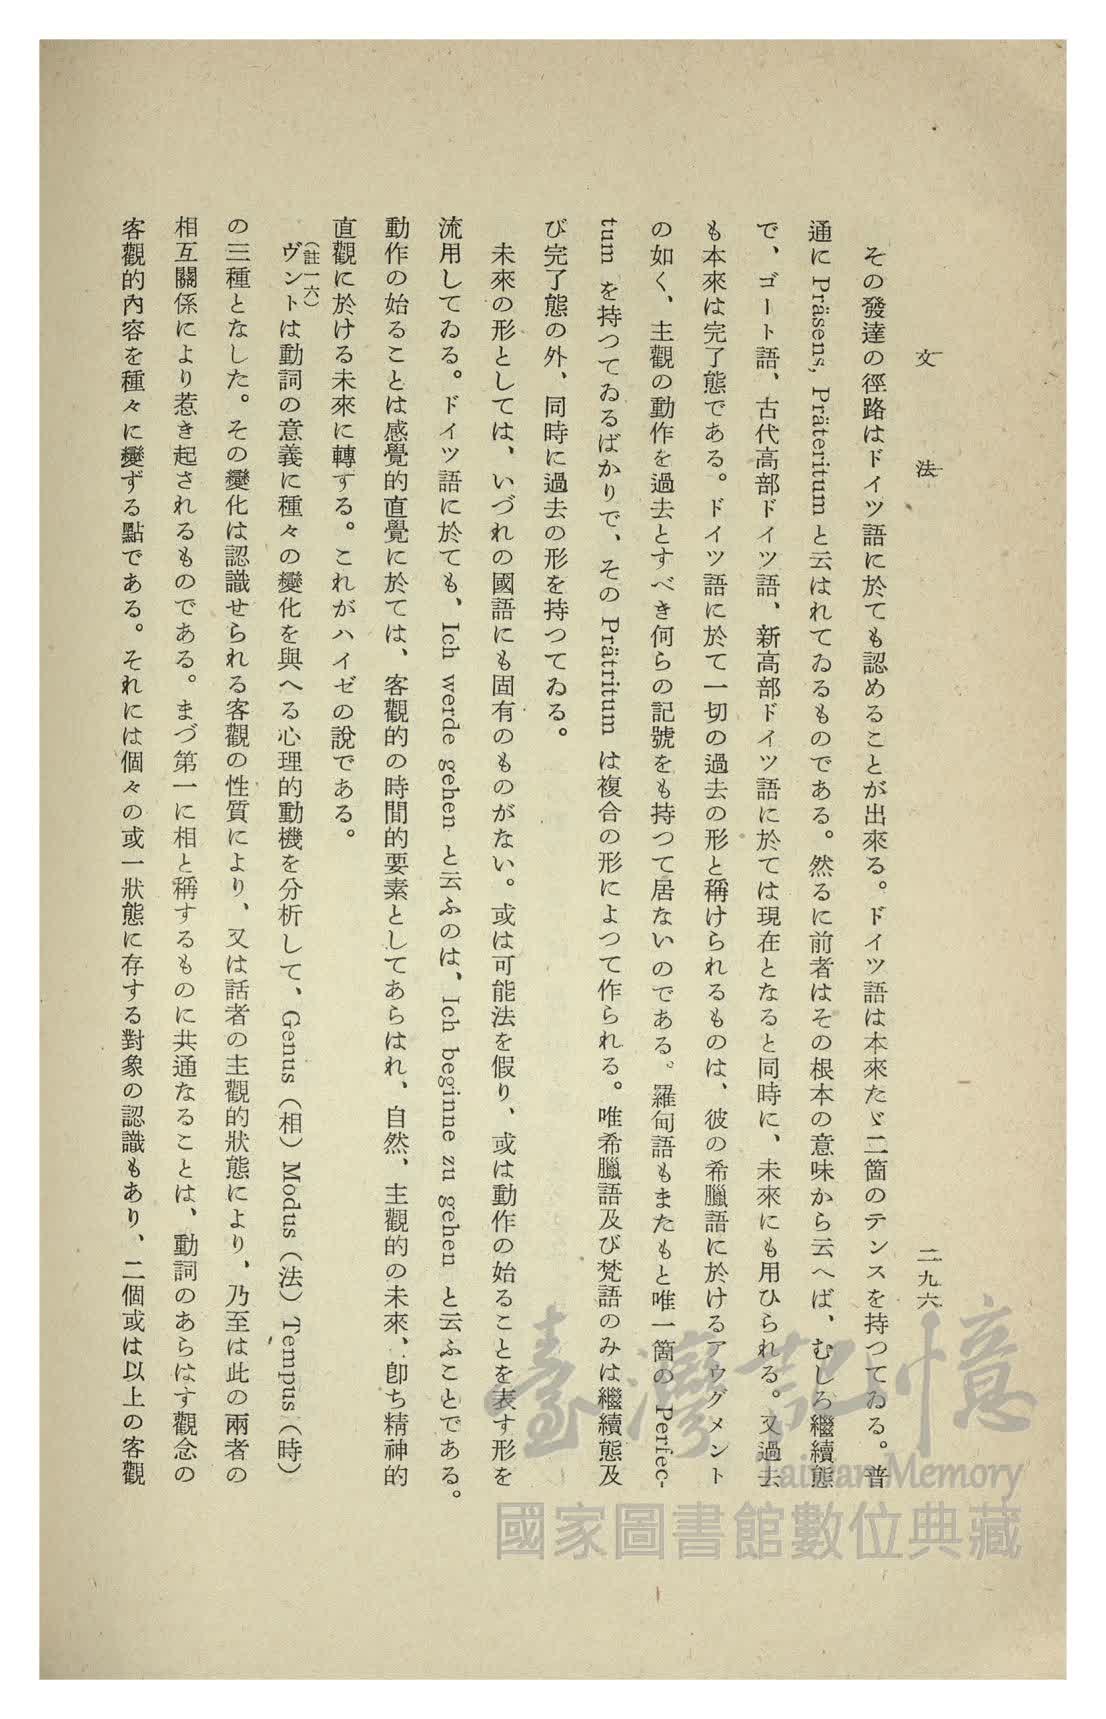 文法
二九六
その發達の徑路はドイツ語に於ても認めることが出來る。ドイツ語は本來たゞ二箇のテンスを持つてゐる。普
通に Präsens, Präteritum と云はれてゐるものである。然るに前者はその根本の意味から云へば、むしろ繼續態
で、ゴート語、古代高部ドイツ語、新高部ドイツ語に於ては現在となると同時に、未來にも用ひられる。又過去
も本來は完了態である。ドイツ語に於て一切の過去の形と稱けられるものは、彼の希臘語に於けるアウグメント
の如く、主觀の動作を過去とすべき何らの記號をも持つて居ないのである。羅甸語もまたもと唯一箇の Perfec-
tum を持つてゐるばかりで、その Prätritum は複合の形によつて作られる。唯希臘語及び梵語のみは繼續態及
び完了態の外、同時に過去の形を持つてゐる。
未來の形としては、いづれの國語にも固有のものがない。或は可能法を假り、或は動作の始ることを表す形を
流用してゐる。ドイツ語に於ても、Ich werde gehen と云ふのは、Ich beginne zu gehen と云ふことである。
動作の始ることは感覺的直覺に於ては、客觀的の時間的要素としてあらはれ、自然、主觀的の未來、卽ち精神的
直觀に於ける未來に轉する。これがハイゼの說である。
（註一六）
ヴントは動詞の意義に種々の變化を與へる心理的動機を分析して、Genus（相）Modus（法）Tempus（時）
の三種となした。その變化は認識せられる客觀の性質により、又は話者の主觀的狀態により、乃至は此の兩者の
相互關係により惹き起されるものである。まづ第一に相と稱するものに共通なることは、動詞のあらはす觀念の
客觀的內容を種々に變ずる點である。それには個々の或一狀態に存する對象の認識もあり、二個或は以上の客觀
臺灣記憶
Taiwan Memory
國家圖書館數位典藏